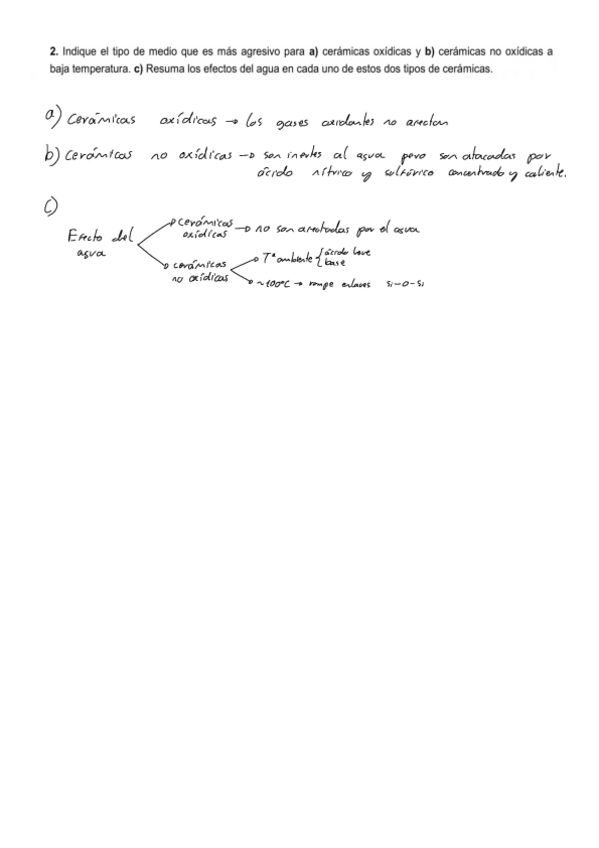 2. Indique el tipo de medio que es más agresivo para a) cerámicas oxídicas y b) cerámicas no oxídicas a
baja temperatura. c) Resuma los efectos del agua en cada uno de estos dos tipos de cerámicas.
a) Cerámicas oxídicas → los gases oxidantes no afectan
b) Cerámicas no oxídicas → son inertes al agua pero son atacadas por
ácido nítrico y sulfúrico concentrado y caliente.
c)
Efecto del
agua
cerámicas
oxídicas → no son afectadas por el agua
cerámicas
no oxídicas
Tª ambiente { ácido leve
base
~100ºC → rompe enlaces Si-O-Si